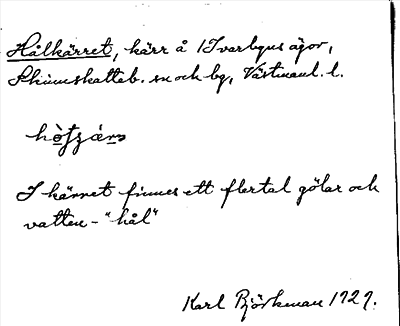 Hålkärret, kärr å Ivarbyns ägor,
Skinnskatteb. sn och bg, Västmanl. l.
I kärret finnes ett flertal gölar och
vatten-"hål"
Karl Björkman 1929.